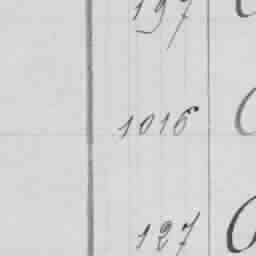 197
1016
127